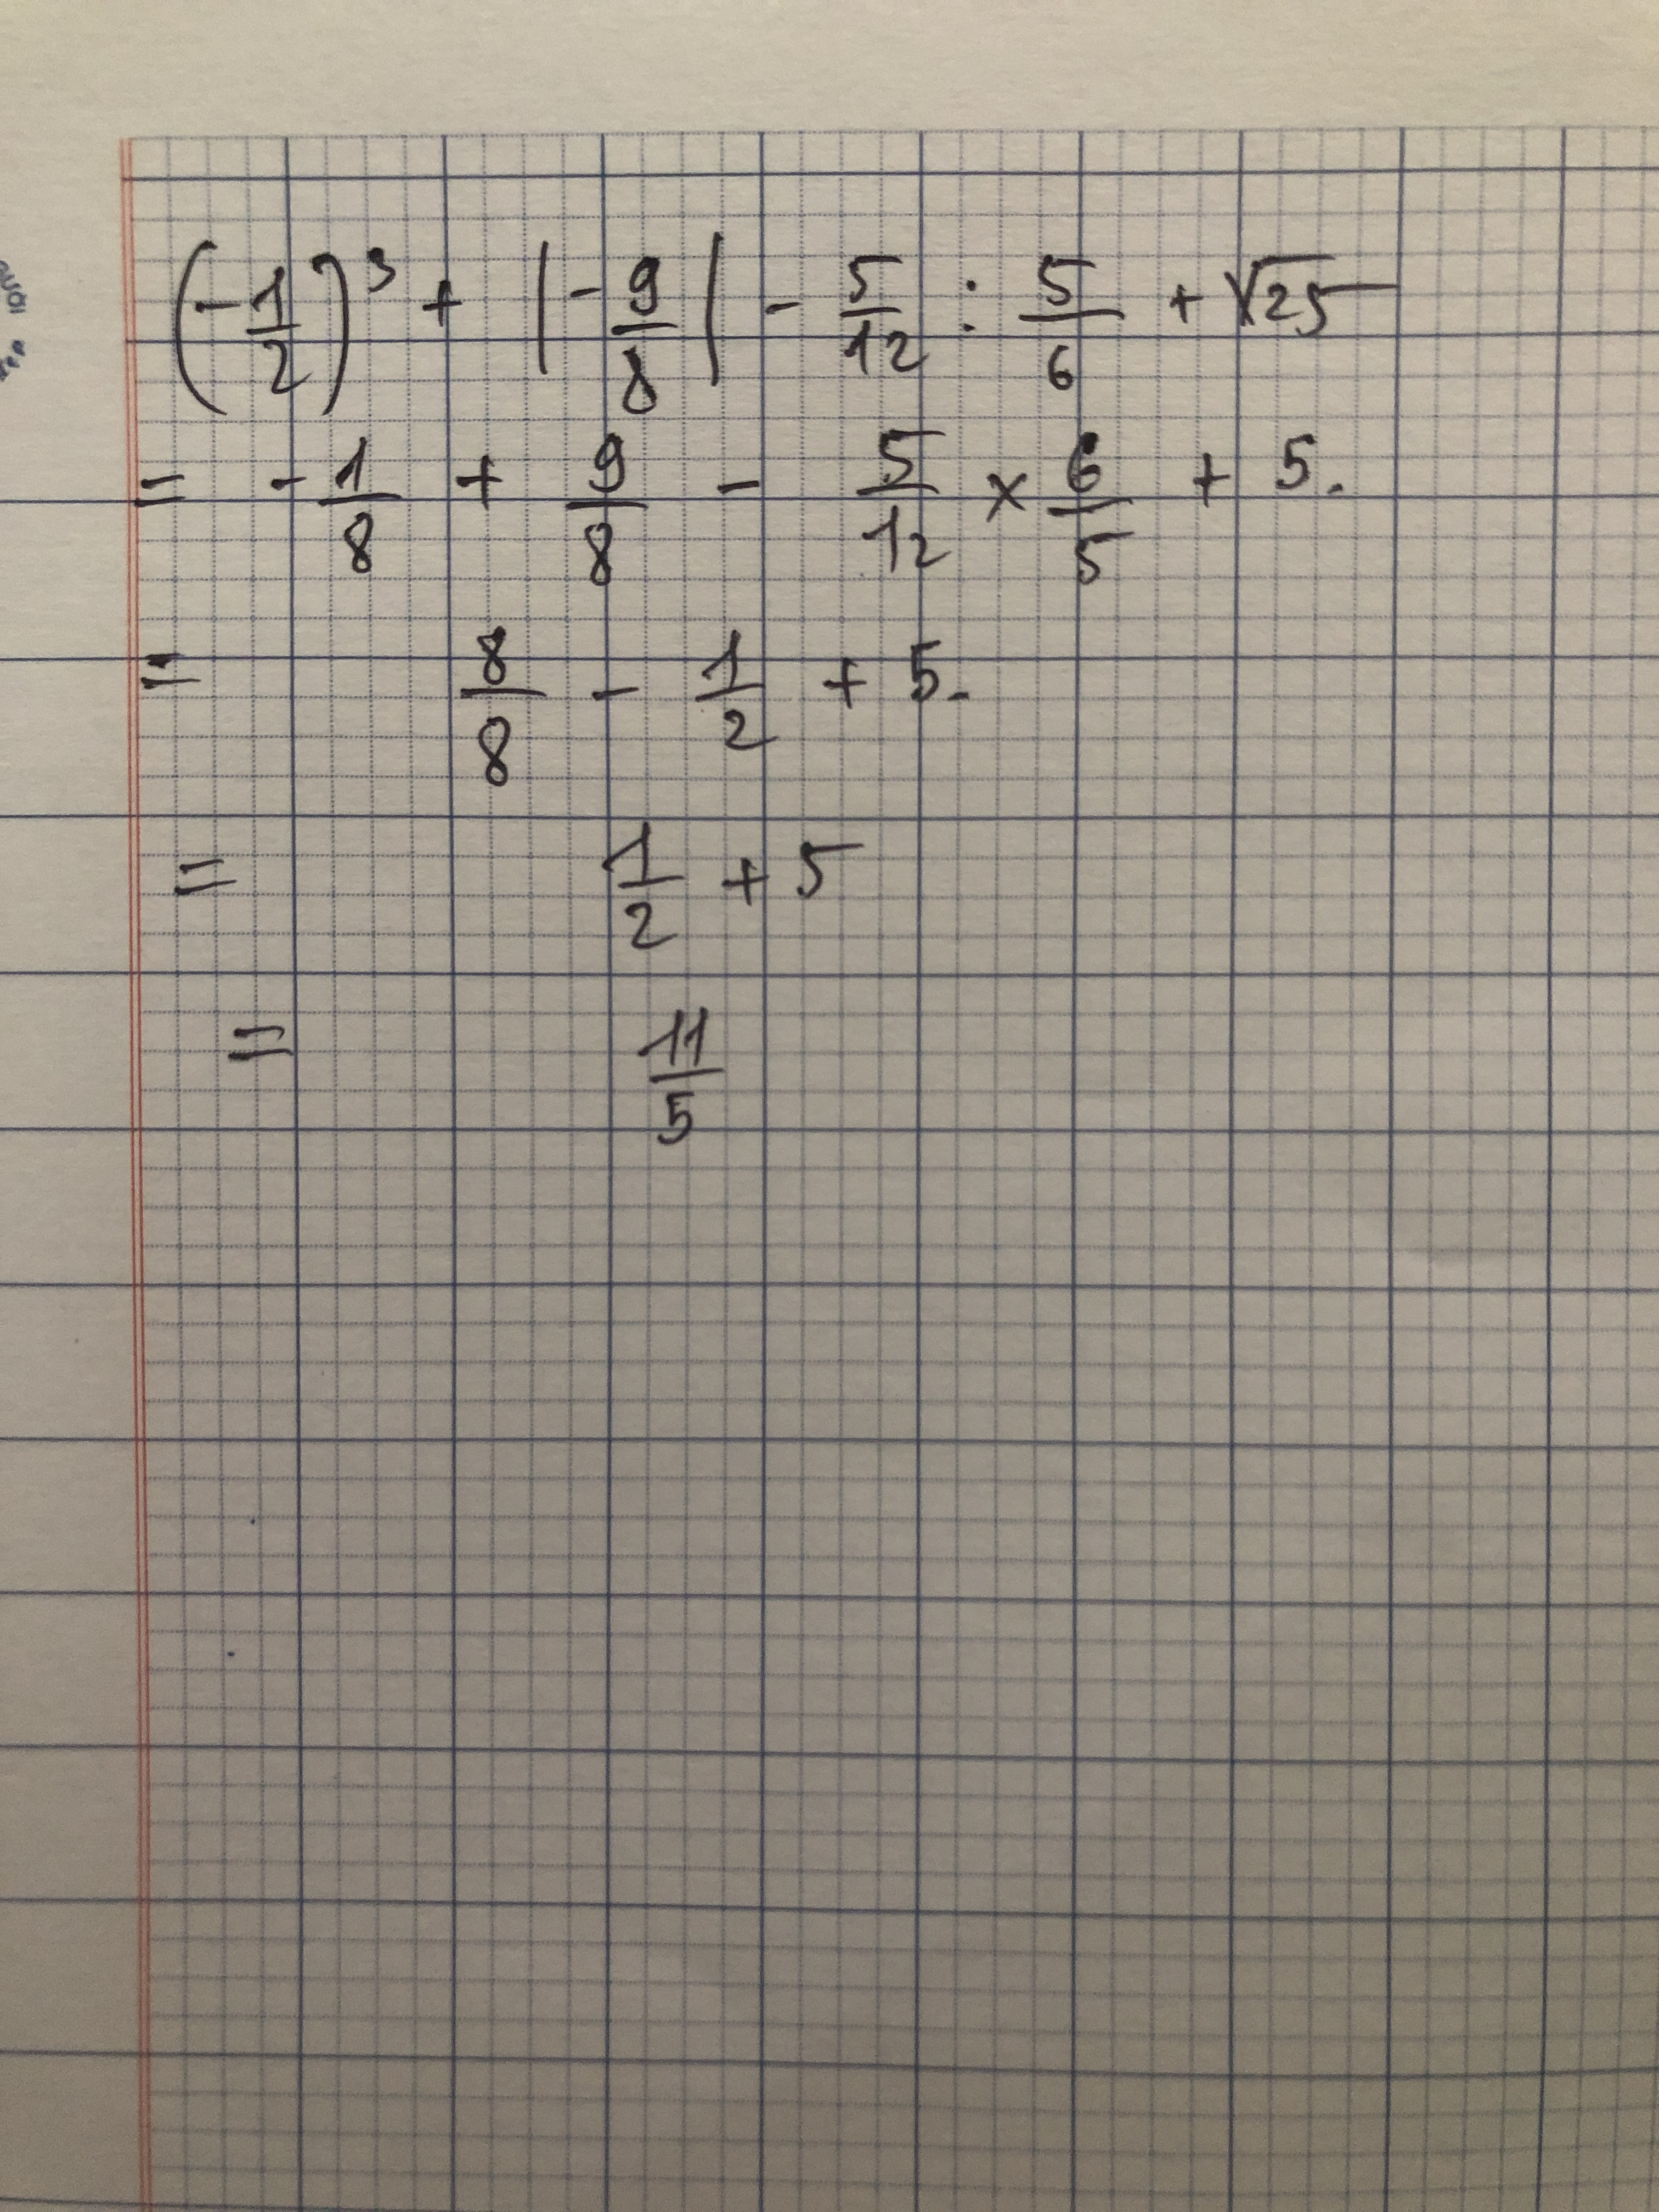 (-1/2)³ + |-9/8| - 5/12 : 5/6 + √25
= -1/8 + 9/8 - 5/12 × 6/5 + 5.
= 8/8 - 1/2 + 5.
= 1/2 + 5
= 11/5